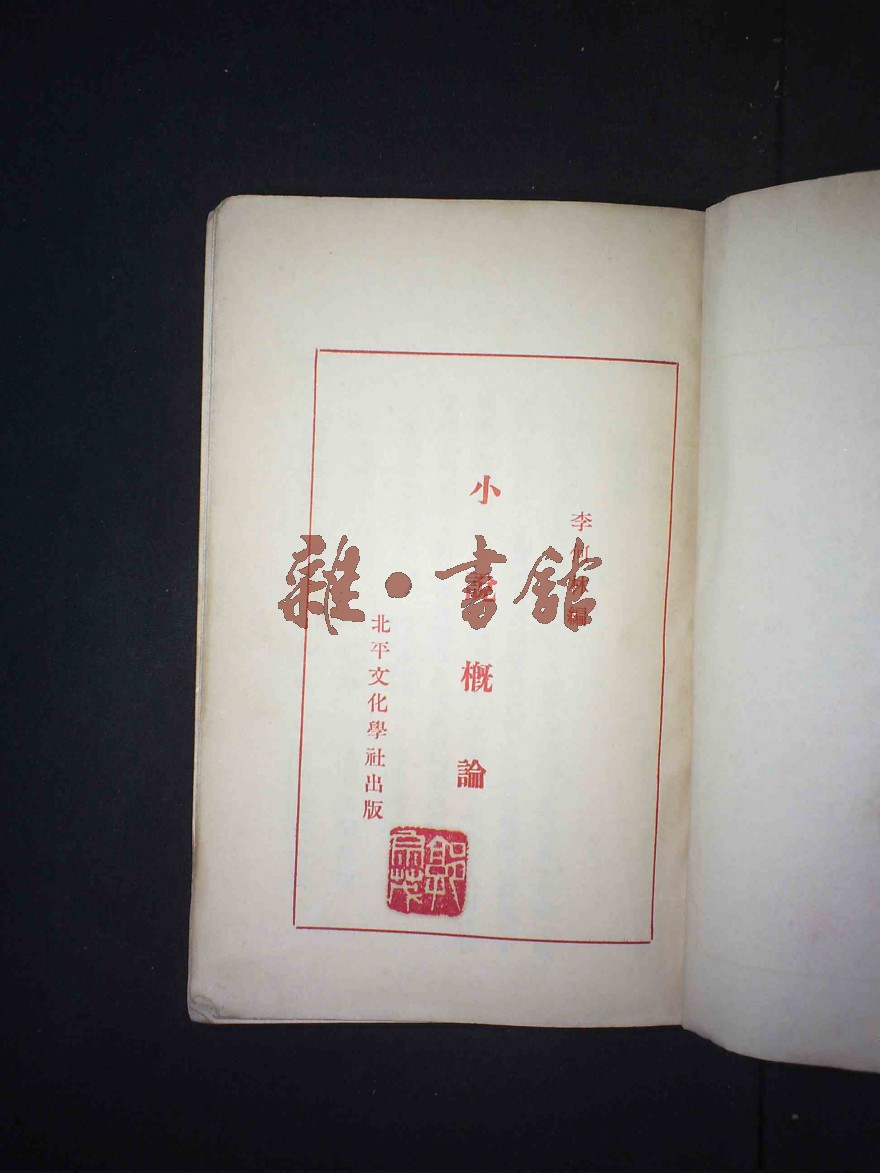 李何林編
小說概論
北平文化學社出版
雜·書館